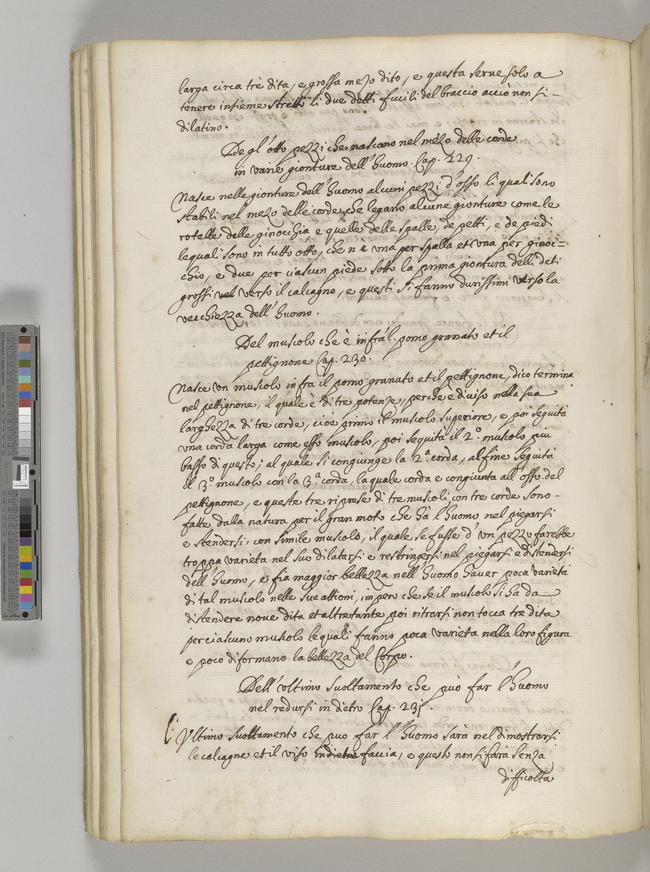 larga circa trè dita, e grossa mezo dito, e questa serue solo a
tenere insieme stretto li due detti fucili del braccio acciò non si
dilatino.
De gl'otto pezzi che nascono nel mezo delle corde
in varie gionture dell'huomo. Cap. 229.
Nasce nelle gionture dell'huomo alcuni pezzi d'osso li quali sono
stabili nel mezo delle corde, che legano alcune gionture come le
rotelle delle ginocchia, e quelle delle spalle, de petti, e de piedi
le quali sono in tutto otto, che n'è vna per spalla et vna per ginoc=
chio, e due per ciascun piede sotto la prima giontura delli deti
grossi vel verso il calcagno, e questi si fanno durissimi verso la
vecchiezza dell'huomo.
Del muscolo che è infra'l pomo granato et il
pettignone Cap. 230.
Nasce vn muscolo infra il pomo granato et il pettignone, dico termina
nel pettignone, il quale è di tre potenze, perche è diuiso nella sua
larghezza di tre corde, cioè primo il muscolo superiore, e poi seguita
vna corda larga come esso muscolo, poi seguita il 2.º muscolo piu
basso di questo; al quale si congiunge la 2.ª corda, al fine seguita
il 3.º muscolo con la 3.ª corda, la quale corda è congiunta all'osso del
pettignone, e queste tre riprese di tre muscoli con tre corde sono
fatte dalla natura per il gran moto che hà l'huomo nel piegarsi
e stendersi con simile muscolo, il quale se fusse d'vn pezzo farebbe
troppa varietà nel suo dilatarsi e restringersi nel piegarsi e distendersi
dell'huomo, e fia maggior bellezza nell'huomo hauer poca varietà
di tal muscolo nelle sue attioni, imperò che se il muscolo si ha da
distendere noue dita et altretante poi ritrarsi non tocca tre dita
per ciascuno muscolo le quali fanno poca varietà nella loro figura
e poco diformano la bellezza del Corpo.
Dell'vltimo suoltamento che può far l'huomo
nel redursi in dietro Cap. 231.
L'Vltimo suoltamento che può far l'huomo sarà nel dimostrarsi
le calcagne et il viso in dietro faccia, e questo non si farà senza
difficoltà